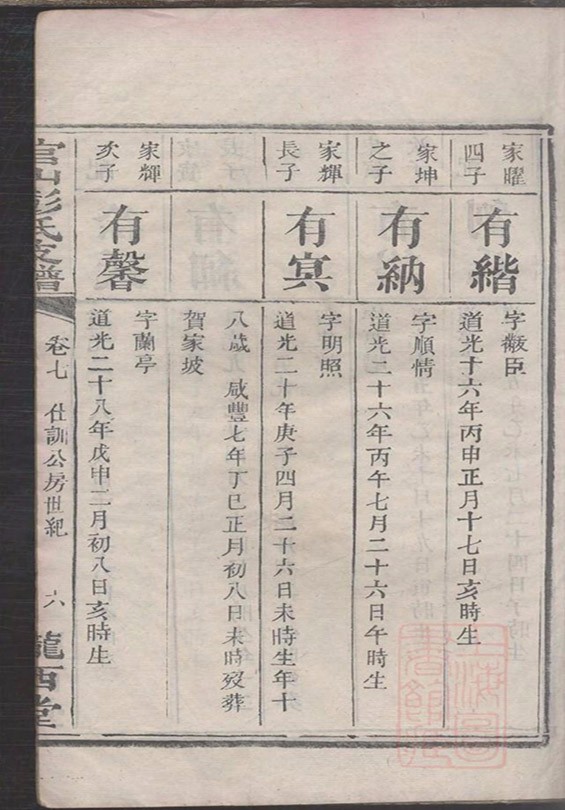 家曜
四子
有緒
字黻臣
道光十六年丙申正月十七日亥時生
家坤
之子
有納
字順情
道光二十六年丙午七月二十六日午時生
家輝
長子
有㝠
字明照
道光二十年庚子四月二十六日未時生年十
八歲 咸豐七年丁巳正月初八日未時歿葬
賀家坡
家輝
次子
有馨
字蘭亭
道光二十八年戊申二月初八日亥時生
官山彭氏支譜
卷七 仕訓公房世紀 六
隴西堂